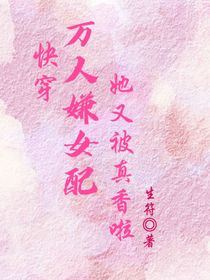 快穿
万人嫌女配
她又被真香啦
生符◎著